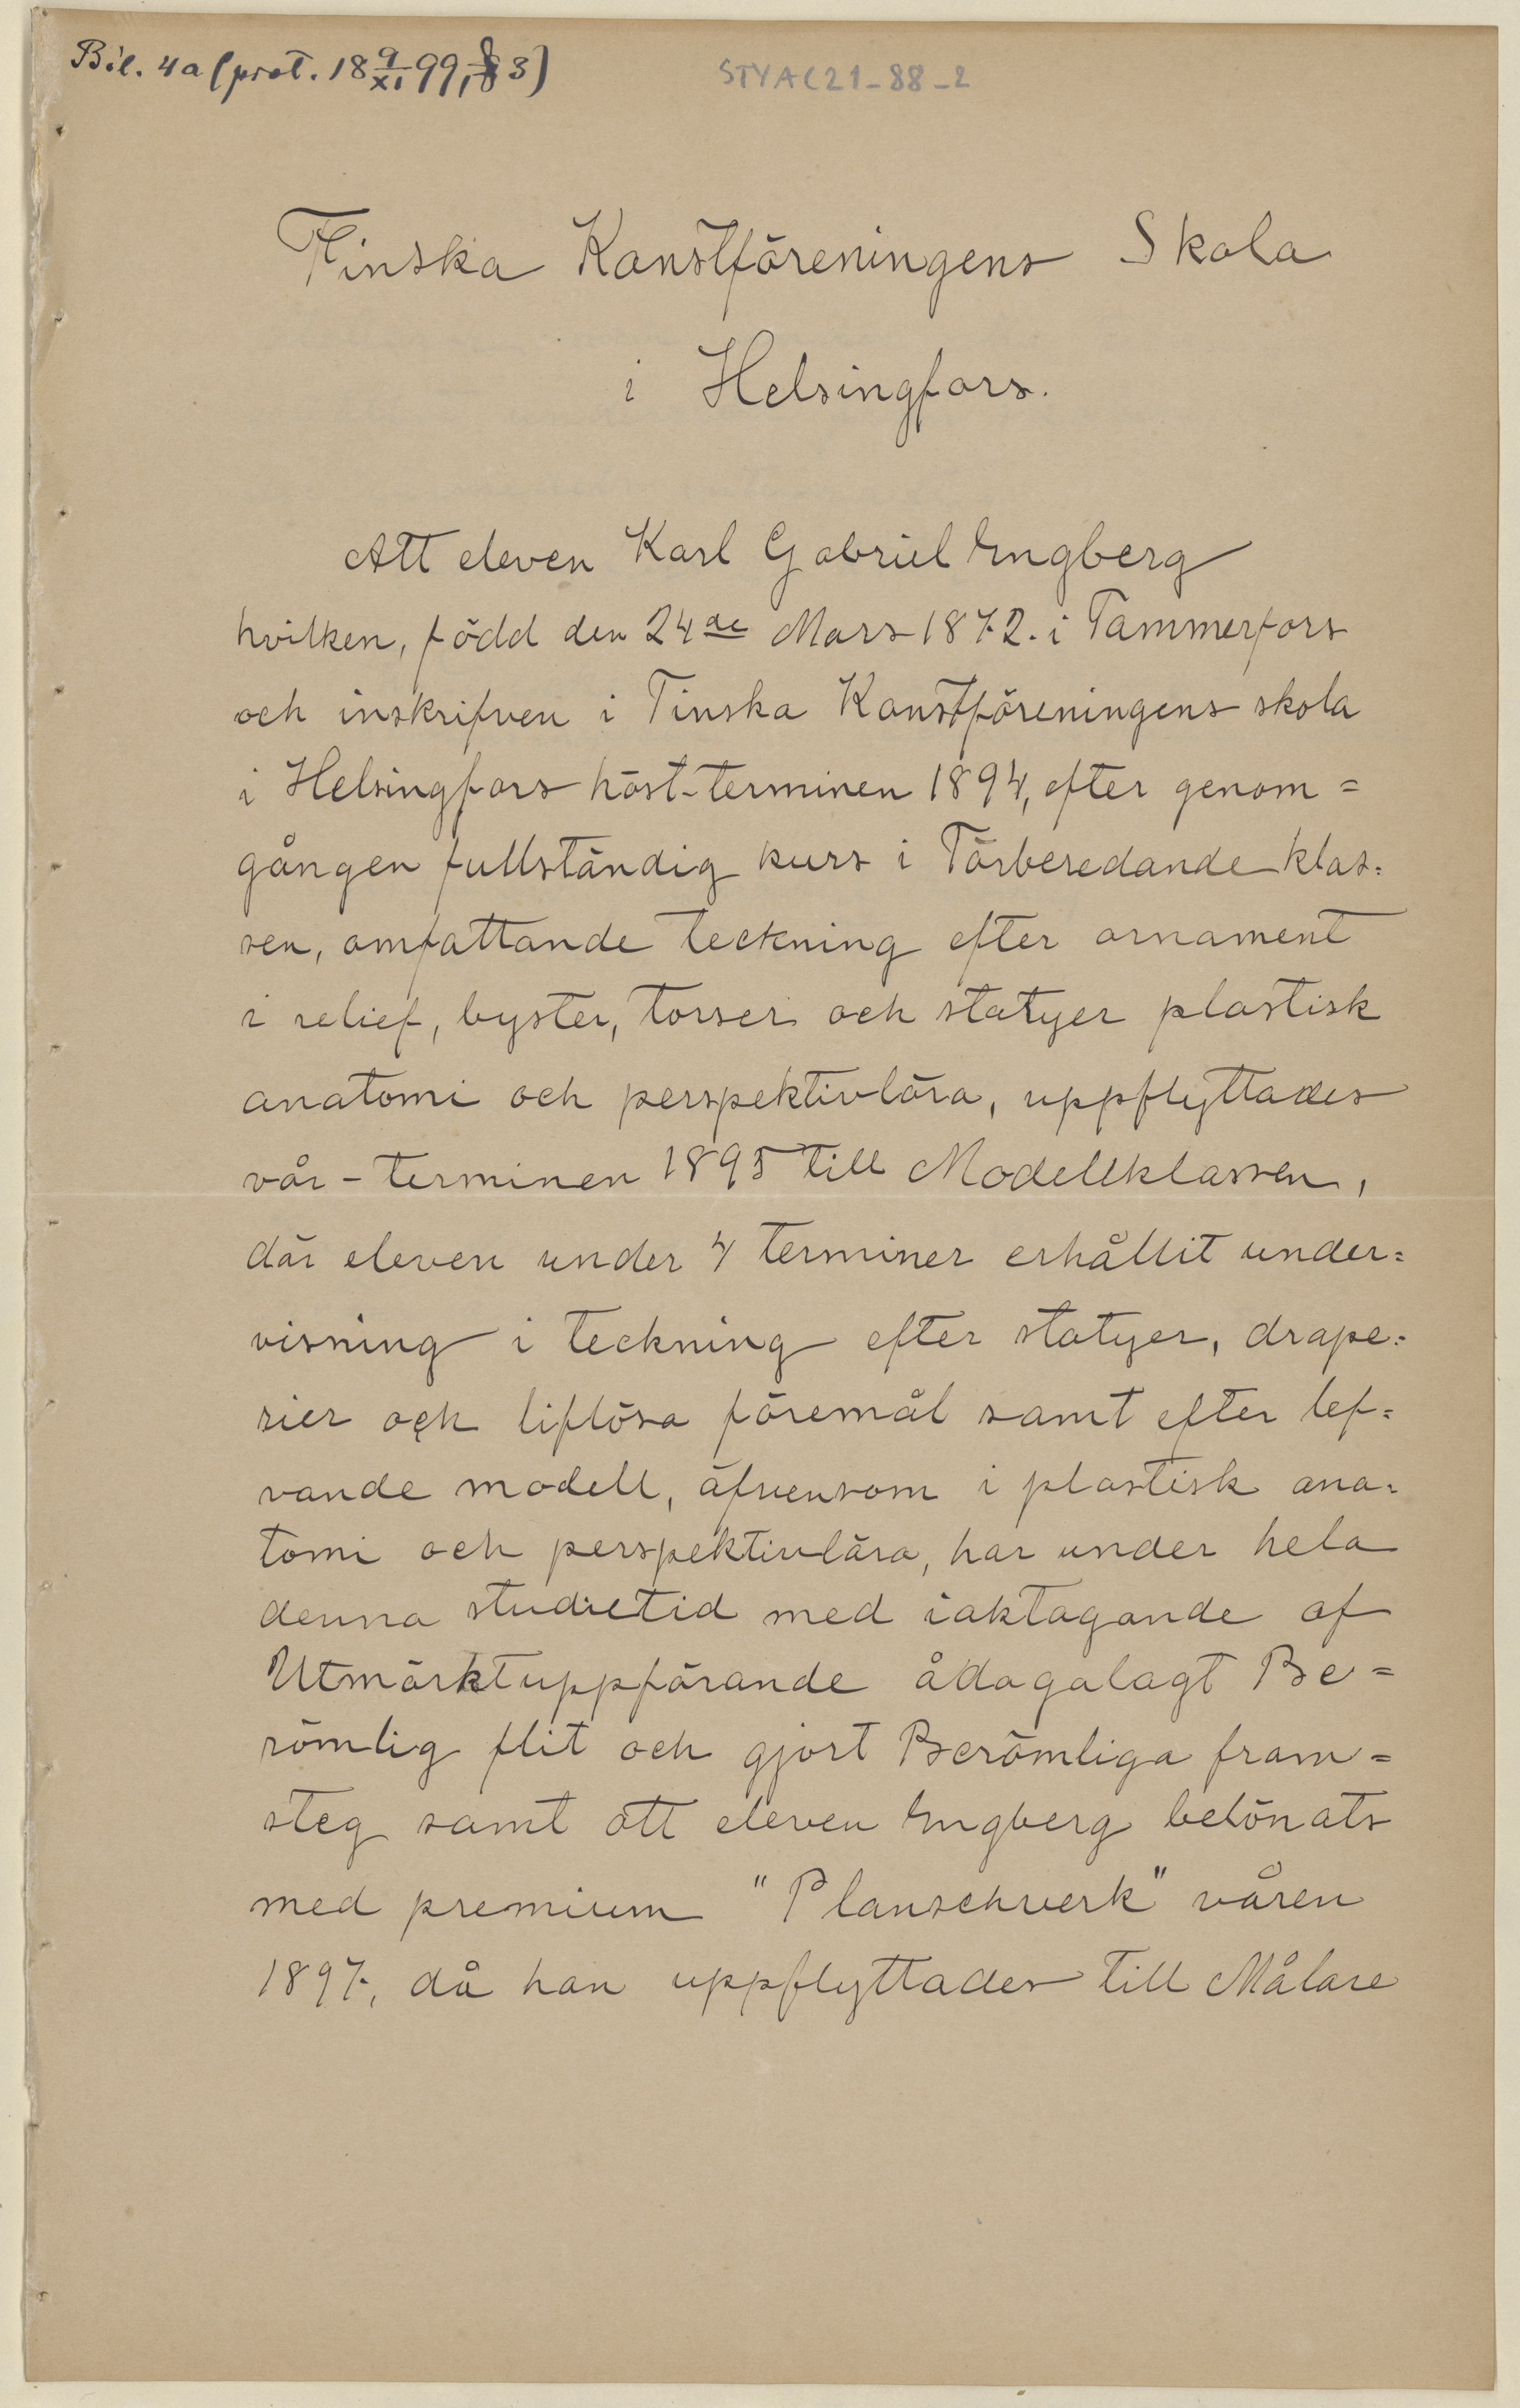 Bil. 4a (prot. 18 9/XI 99, § 3)
STYA C21-88-2
Finska Konstföreningens Skola
i Helsingfors.
Att eleven Karl Gabriel Engberg
hvilken, född den 24de Mars 1872. i Tammerfors
och inskrifven i Finska Konstföreningens skola
i Helsingfors höst-terminen 1894, efter genom=
gången fullständig kurs i Förberedande klas=
sen, omfattande teckning efter ornament
i relief, byster, torser och statyer plastisk
anatomi och perspektivlära, uppflyttades
vår-terminen 1895 till Modellklassen,
där eleven under 4 terminer erhållit under=
visning i teckning efter statyer, drape=
rier och liflösa föremål samt efter lef=
vande modell, äfvensom i plastisk ana=
tomi och perspektivlära, har under hela
denna studietid med iakttagande af
Utmärkt uppförande ådagalagt Be=
römlig flit och gjort Berömliga fram=
steg samt att eleven Engberg belönats
med premium "Planschverk" våren
1897, då han uppflyttades till Målare